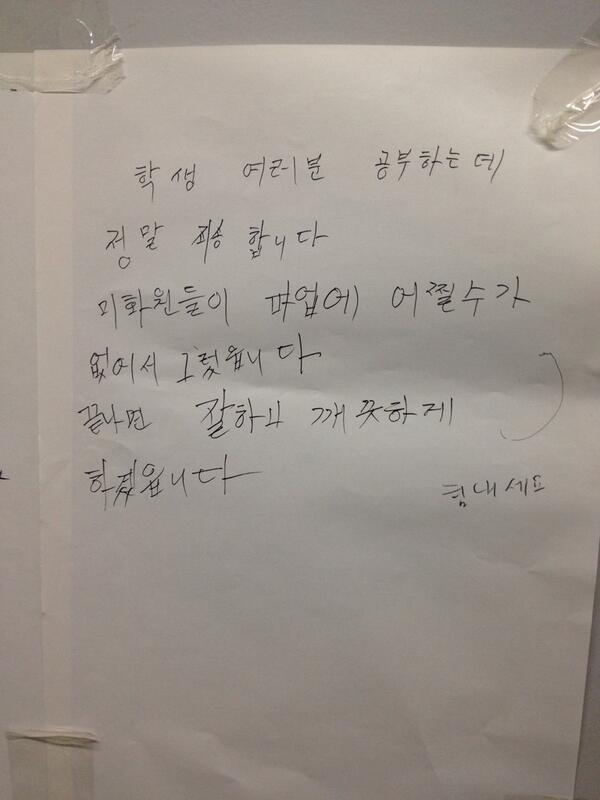 학생 여러분 공부하는데
정말 죄송 합니다
미화원들이 파업에 어쩔수가
없어서 그렀읍니다
끝나면 잘하고 깨끗하게
하겠읍니다
힘내세요